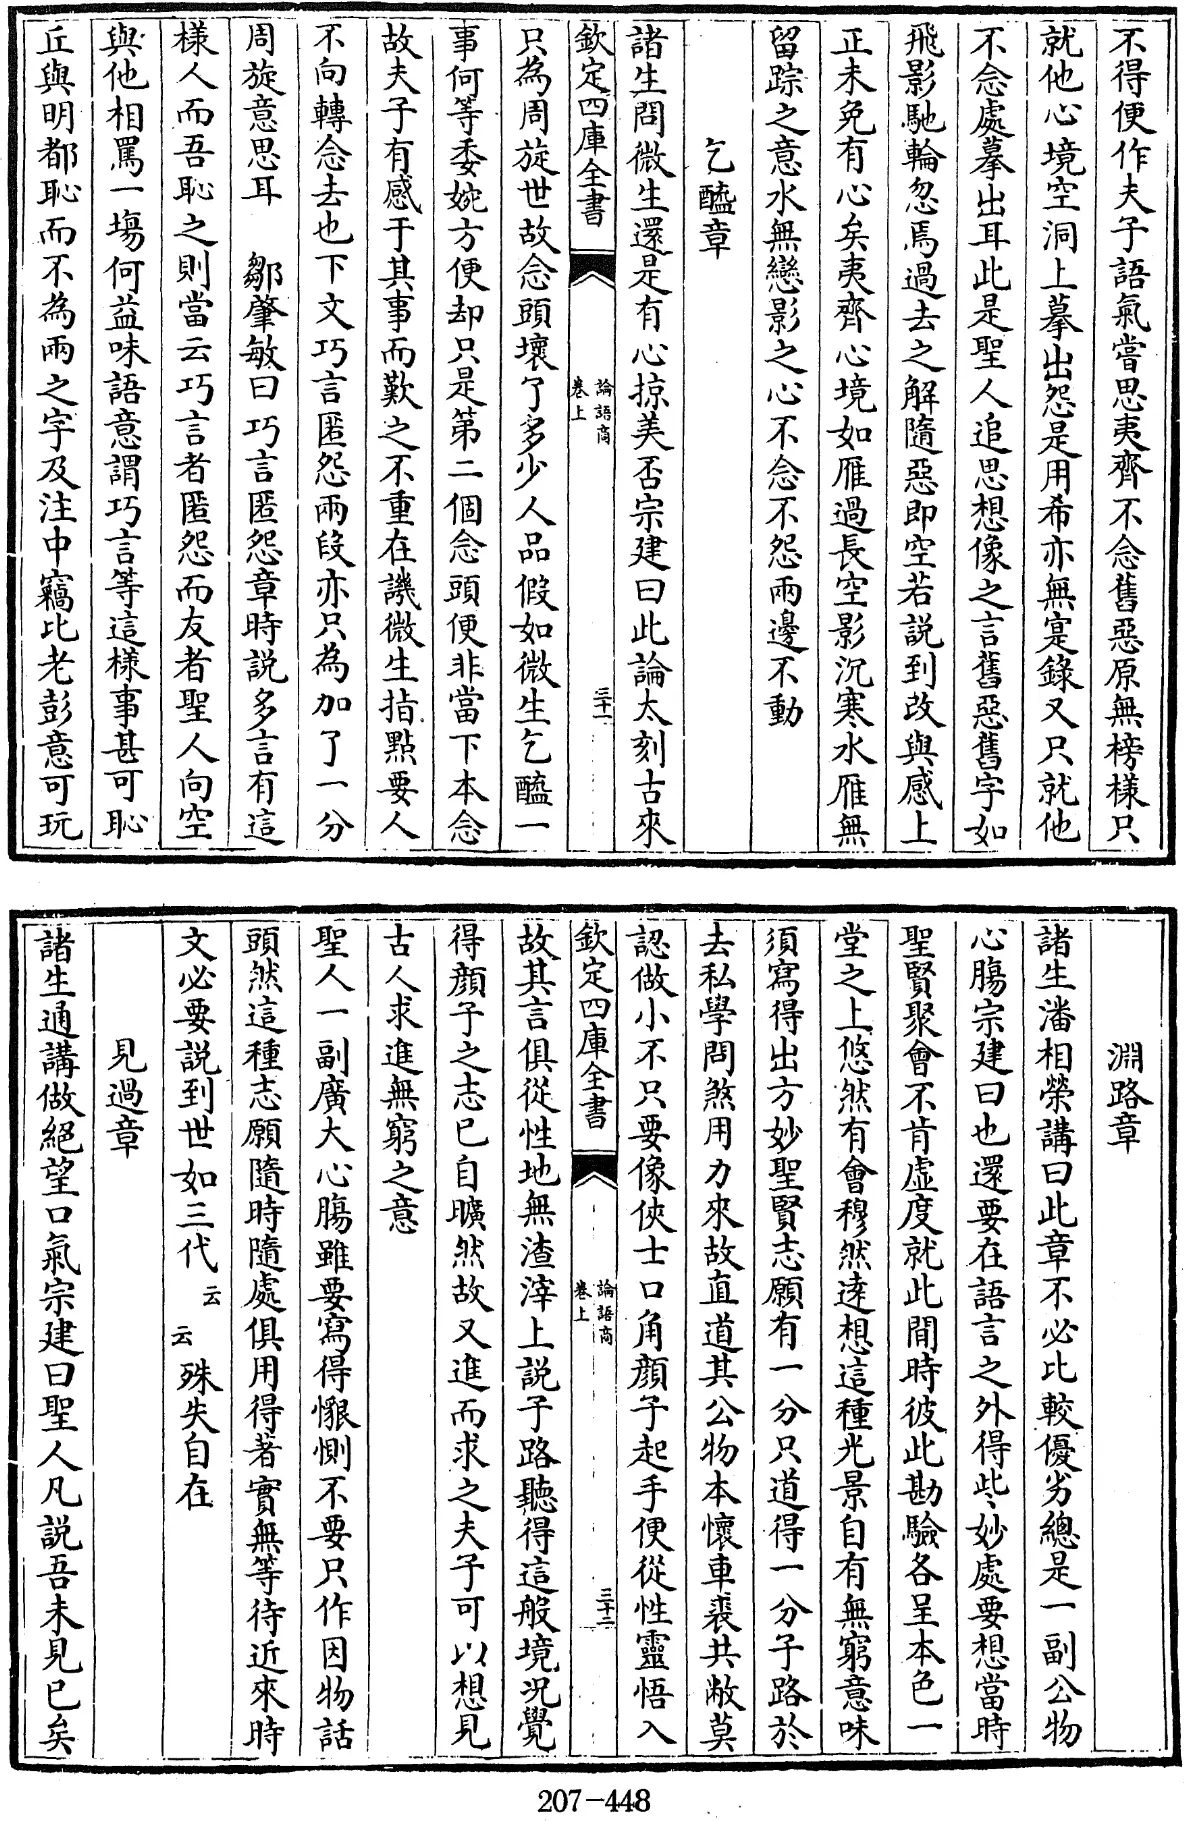 不得便作夫子語氣嘗思夷齊不念舊惡原無榜樣只
就他心境空洞上摹出怨是用希亦無寔錄又只就他
不念處摹出耳此是聖人追思想像之言舊惡舊字如
飛影馳輪忽焉過去之解隨惡即空若説到改與感上
正未免有心矣夷齊心境如雁過長空影沉寒水雁無
留踪之意水無戀影之心不念不怨兩邊不動
乞醯章
諸生問微生還是有心掠美否宗建曰此論太刻古來
欽定四庫全書
論語商
卷上
三十一
只為周旋世故念頭壞了多少人品假如微生乞醯一
事何等委婉方便却只是第二個念頭便非當下本念
故夫子有感于其事而歎之不重在譏微生指點要人
不向轉念去也下文巧言匿怨兩段亦只為加了一分
周旋意思耳　鄒肇敏曰巧言匿怨章時説多言有這
樣人而吾恥之則當云巧言者匿怨而友者聖人向空
與他相罵一塲何益味語意謂巧言等這樣事甚可恥
丘與明都恥而不為兩之字及注中竊比老彭意可玩
淵路章
諸生潘相榮講曰此章不必比較優劣總是一副公物
心腸宗建曰也還要在語言之外得些妙處要想當時
聖賢聚會不肯虛度就此間時彼此勘驗各呈本色一
堂之上悠然有會穆然逹想這種光景自有無窮意味
須寫得出方妙聖賢志願有一分只道得一分子路於
去私學問煞用力來故直道其公物本懷車裘共敝莫
認做小不只要像俠士口角顔子起手便從性靈悟入
欽定四庫全書
論語商
卷上
三十二
故其言俱從性地無渣滓上説子路聽得這般境況覺
得顔子之志已自曠然故又進而求之夫子可以想見
古人求進無窮之意
聖人一副廣大心腸雖要寫得懇惻不要只作因物話
頭然這種志願隨時隨處俱用得著實無等待近來時
文必要説到世如三代云云殊失自在
見過章
諸生通講做絕望口氣宗建曰聖人凡説吾未見已矣
207-448